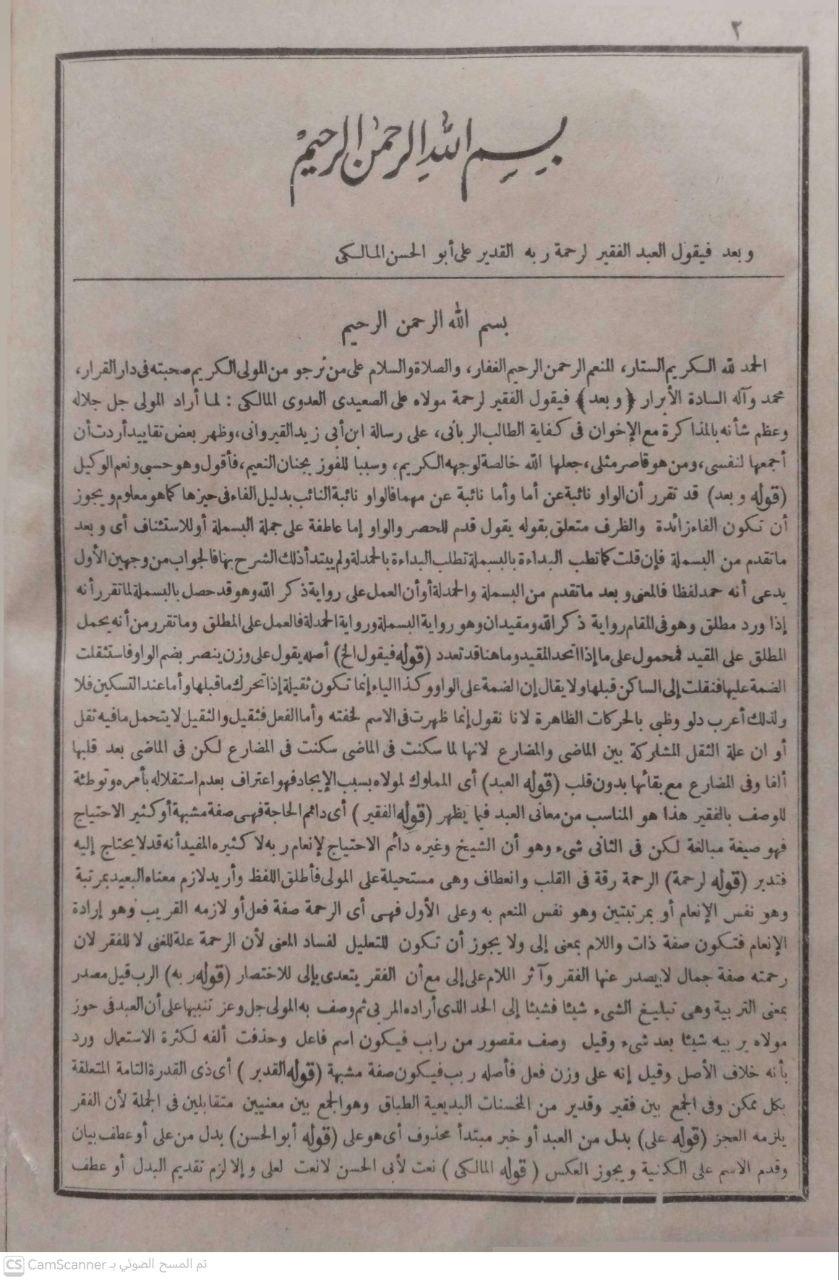 ٢
بسم الله الرحمن الرحيم
وبعد فيقول العبد الفقير لرحمة ربه القدير على أبو الحسن المالكى
بسم الله الرحمن الرحيم
الحمد لله الكريم الستار، المنعم الرحمن الرحيم الغفار، والصلاة والسلام على من نرجو من المولى الكريم صحبته فى دار القرار،
محمد وآله السادة الأبرار ﴿وبعد﴾ فيقول الفقير لرحمة مولاه على الصعيدى العدوى المالكى : لما أراد المولى جل جلاله
وعظم شأنه بالمذاكرة مع الإخوان فى كفاية الطالب الربانى، على رسالة ابن أبى زيد القيروانى، وظهر بعض تقاييد أردت أن
أجمعها لنفسى، ومن هو قاصر مثلى، جعلها الله خالصة لوجهه الكريم، وسببا للفوز بجنان النعيم، فأقول وهو حسبى ونعم الوكيل
(قوله وبعد) قد تقرر أن الواو نائبة عن أما وأما نائبة عن مهما فالواو نائبة النائب بدليل الفاء فى حيزها كما هو معلوم ويجوز
أن تكون الفاء زائدة والظرف متعلق بقوله يقول قدم للحصر والواو إما عاطفة على جملة البسملة أو للاستئناف أى وبعد
ماتقدم من البسملة فإن قلت كما تطلب البداءة بالبسملة تطلب البداءة بالحمدلة ولم يبتدأ ذلك الشرح بها فالجواب من وجهين الأول
يدعى أنه حمد لفظا فالمعنى وبعد ماتقدم من البسملة والحمدلة أو أن العمل على رواية ذكر الله وهو قد حصل بالبسملة لما تقرر أنه
إذا ورد مطلق وهو فى المقام رواية ذكر الله ومقيدان وهو رواية البسملة ورواية الحمدلة فالعمل على المطلق وما تقرر من أنه يحمل
المطلق على المقيد فمحمول على ما إذا اتحد المقيد وما هنا قد تعدد (قوله فيقول الخ) أصله يقول على وزن ينصر بضم الواو فاستثقلت
الضمة عليها فنقلت إلى الساكن قبلها ولا يقال إن الضمة على الواو وكذا الياء إنما تكون ثقيلة إذا تحرك ما قبلها وأما عند التسكين فلا
ولذلك أعرب دلو وظبى بالحركات الظاهرة لانا نقول إنما ظهرت فى الاسم لخفته وأما الفعل فثقيل والثقيل لايتحمل مافيه ثقل
أو ان علة الثقل المشاركة بين الماضى والمضارع لانها لما سكنت فى الماضى سكنت فى المضارع لكن فى الماضى بعد قلبها
ألفا وفى المضارع مع بقائها بدون قلب (قوله العبد) أى المملوك لمولاه بسبب الإيجاد فهو اعتراف بعدم استقلاله بأمره وتوطئة
للوصف بالفقير هذا هو المناسب من معانى العبد فيما يظهر (قوله الفقير) أى دائم الحاجة فهى صفة مشبهة أو كثير الاحتياج
فهو صيغة مبالغة لكن فى الثانى شىء وهو أن الشيخ وغيره دائم الاحتياج لإنعام ربه لا كثيره المفيد أنه قد لا يحتاج إليه
فتدبر (قوله لرحمة) الرحمة رقة فى القلب وانعطاف وهى مستحيلة على المولى فأطلق اللفظ وأريد لازم معناه البعيد بمرتبة
وهو نفس الإنعام أو بمرتبتين وهو نفس المنعم به وعلى الأول فهى أى الرحمة صفة فعل أو لازمه القريب وهو إرادة
الإنعام فتكون صفة ذات واللام بمعنى إلى ولا يجوز أن تكون للتعليل لفساد المعنى لأن الرحمة علة للغنى لا للفقر لان
رحمته صفة جمال لايصدر عنها الفقر وآثر اللام على إلى مع أن الفقر يتعدى بإلى للاختصار (قوله ربه) الرب قيل مصدر
بمعنى التربية وهى تبليغ الشىء شيئا فشيئا إلى الحد الذى أراده المربى ثم وصف به المولى جل وعز تنبيها على أن العبد فى حوز
مولاه يربيه شيئا بعد شىء وقيل وصف مقصور من رابب فيكون اسم فاعل وحذفت ألفه لكثرة الاستعمال ورد
بأنه خلاف الأصل وقيل إنه على وزن فعل فأصله ربب فيكون صفة مشبهة (قوله القدير) أى ذى القدرة التامة المتعلقة
بكل ممكن وفى الجمع بين فقير وقدير من المحسنات البديعية الطباق وهو الجمع بين معنيين متقابلين فى الجملة لأن الفقر
يلزمه العجز (قوله على) بدل من العبد أو خبر مبتدأ محذوف أى هو على (قوله أبو الحسن) بدل من على أو عطف بيان
وقدم الاسم على الكنية ويجوز العكس (قوله المالكى) نعت لأبى الحسن لانعت لعلى وإلا لزم تقديم البدل أو عطف
CS CamScanner تم المسح الضوئي بـ